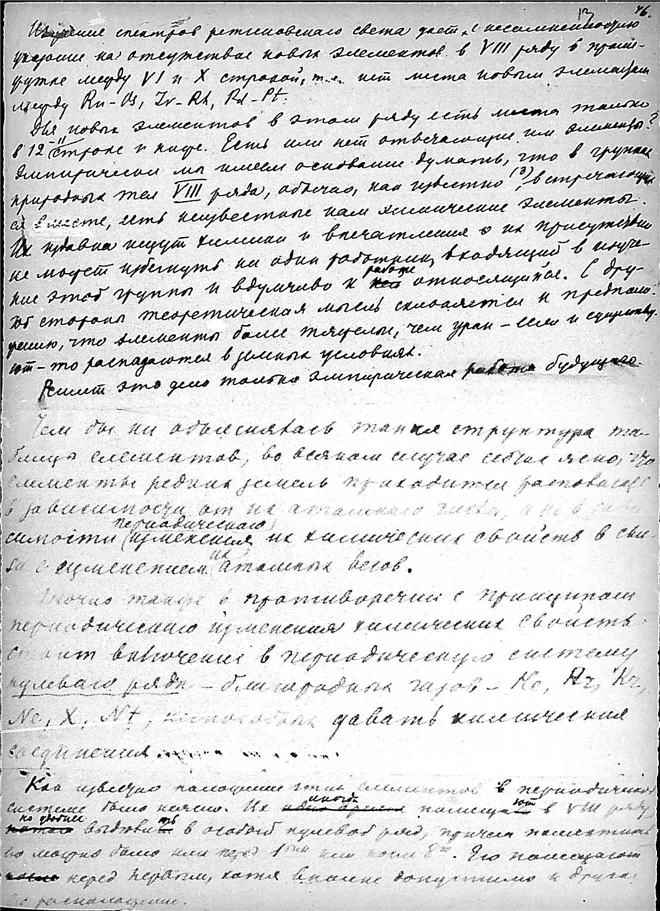 17 46.
Изучение спектров рентгеновского света дает с несомненностью
указание на отсутствие новых элементов в VIII ряду в проме-
жутке между VI и X строкой, т.е. нет места новым элементам
между Ru-Os, Ir-Rh, Pd-Pt.
Для новых элементов в этом ряду есть места только
в 12-й строке и ниже. Есть или нет отвечающие им элементы?
Эмпирически мы имеем основание думать, что в группах
природных тел VIII ряда, обычно, как известно (3), встречающих
ся вместе, есть неизвестные нам химические элементы.
Их издавна ищут химики и впечатления о их присутствии
не может избегнуть ни один работник, входящий в изуче-
ние этой группы и вдумчиво к работе относящийся. С дру-
гой стороны теоретическая мысль склоняется к предполо-
жению, что элементы более тяжелые, чем уран - если и существу
ют - то распадаются в земных условиях.
Решит это дело только эмпирическая работа будущего
Чем бы ни объяснялась такая структура та-
блицы элементов, во всяком случае сейчас ясно, что
элементы редких земель приходится располагать
в зависимости от их атомного числа, а не в зави-
симости периодического изменения их химических свойств в свя-
зи с изменением их атомных весов.
Точно также в противоречии с принципом
периодического изменения химических свойств
стоит включение в периодическую систему
нулевого ряда - благородных газов - He, Ar, Kr,
Ne, X, Nt, неспособных давать химические
соединения.
Как известно положение этих элементов в периодической
системе было неясно. Их иногда помещают в VIII ряду
но удобнее выдвинуть в особый нулевой ряд, причем поместить
его можно было или перед 1-ым или после 8-го. Его помещают
перед первым, хотя вполне допустимо и другое
расположение.